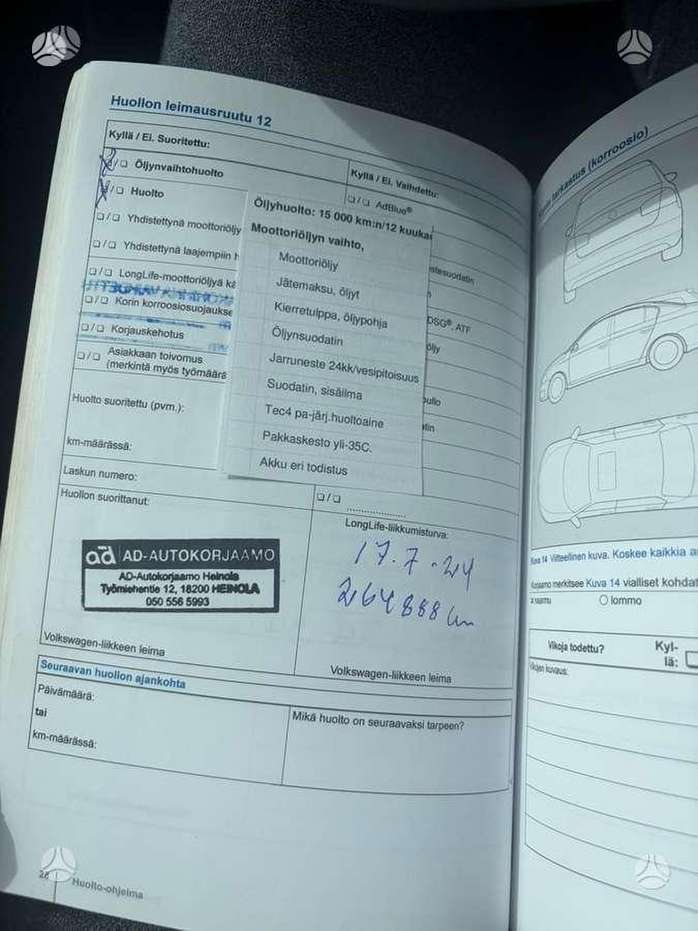 Huollon leimausruutu 12
Kyllä / Ei. Suoritettu:
/ Öljynvaihtohuolto
/ Huolto
/ Yhdistettynä moottoriöljy
/ Yhdistettynä laajempiin h
/ LongLife-moottoriöljyä kä
/ Korin korroosiosuojaukse
/ Korjauskehotus
/ Asiakkaan toivomus
(merkintä myös työmäärä
Kyllä / Ei. Vaihdettu:
/ AdBlue®
DSG®, ATF
Öljyhuolto: 15 000 km:n/12 kuukau
Moottoriöljyn vaihto,
Moottoriöljy
Jätemaksu, öljyt
Kierretulppa, öljypohja
Öljynsuodatin
Jarruneste 24kk/vesipitoisuus
Suodatin, sisäilma
Tec4 pa-järj.huoltoaine
Pakkaskesto yli-35C.
Akku eri todistus
Huolto suoritettu (pvm.):
km-määrässä:
Laskun numero:
Huollon suorittanut:
ad AD-AUTOKORJAAMO
AD-Autokorjaamo Heinola
Työmiehentie 12, 18200 HEINOLA
050 556 5993
Volkswagen-liikkeen leima
/
LongLife-liikkumisturva:
17.7-24
264888 km
Volkswagen-liikkeen leima
Seuraavan huollon ajankohta
Päivämäärä:
tai
km-määrässä:
Mikä huolto on seuraavaksi tarpeen?
Huolto-ohjelma
tarkastus (korroosio)
Kuva 14 Viitteellinen kuva. Koskee kaikkia
merkitsee Kuva 14 vialliset kohdat
lommo
Vikoja todettu?
Kyl-
lä:
Vikojen kuvaus: